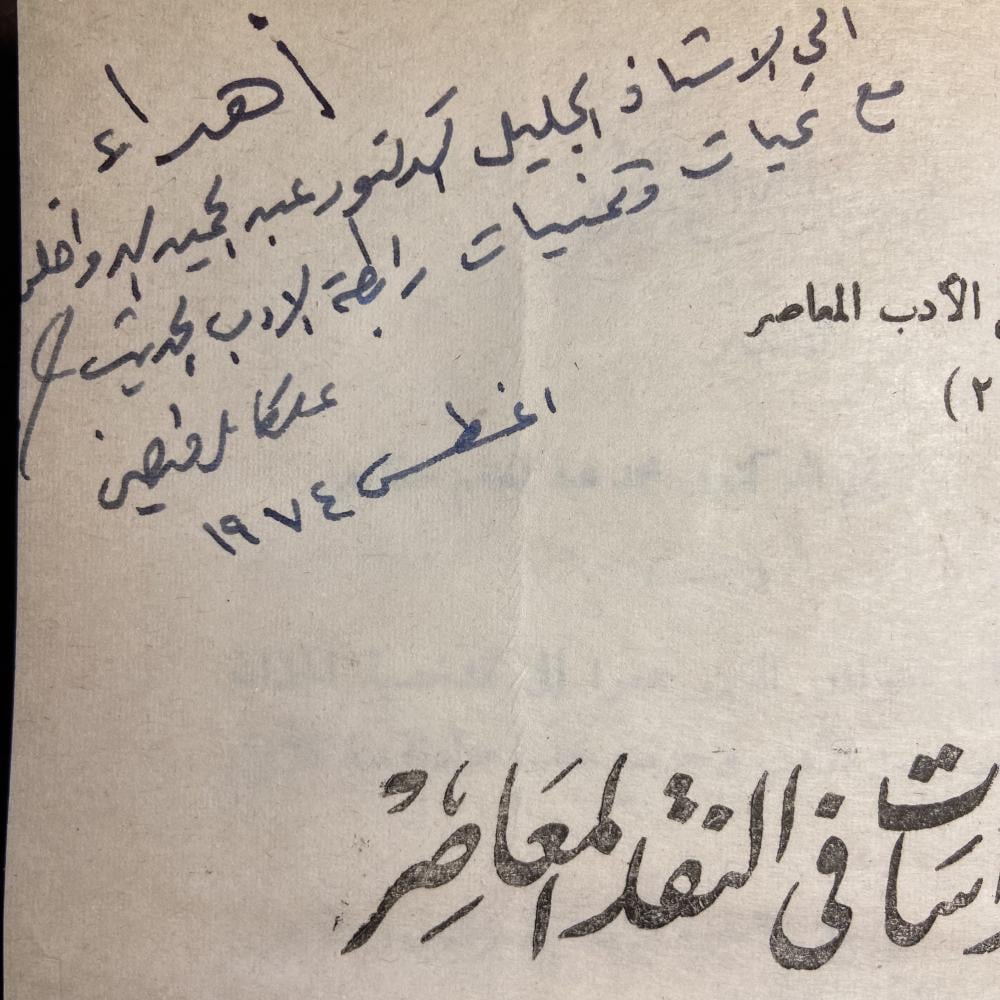 أهداء
الى الاستاذ الجليل الدكتور عبد الحميد الدواخلى
مع تحيات وتمنيات رابطة الأدب الحديث /
اغسطس ١٩٧٤
الأدب المعاصر
٢)
اسات في النقد المعاصر